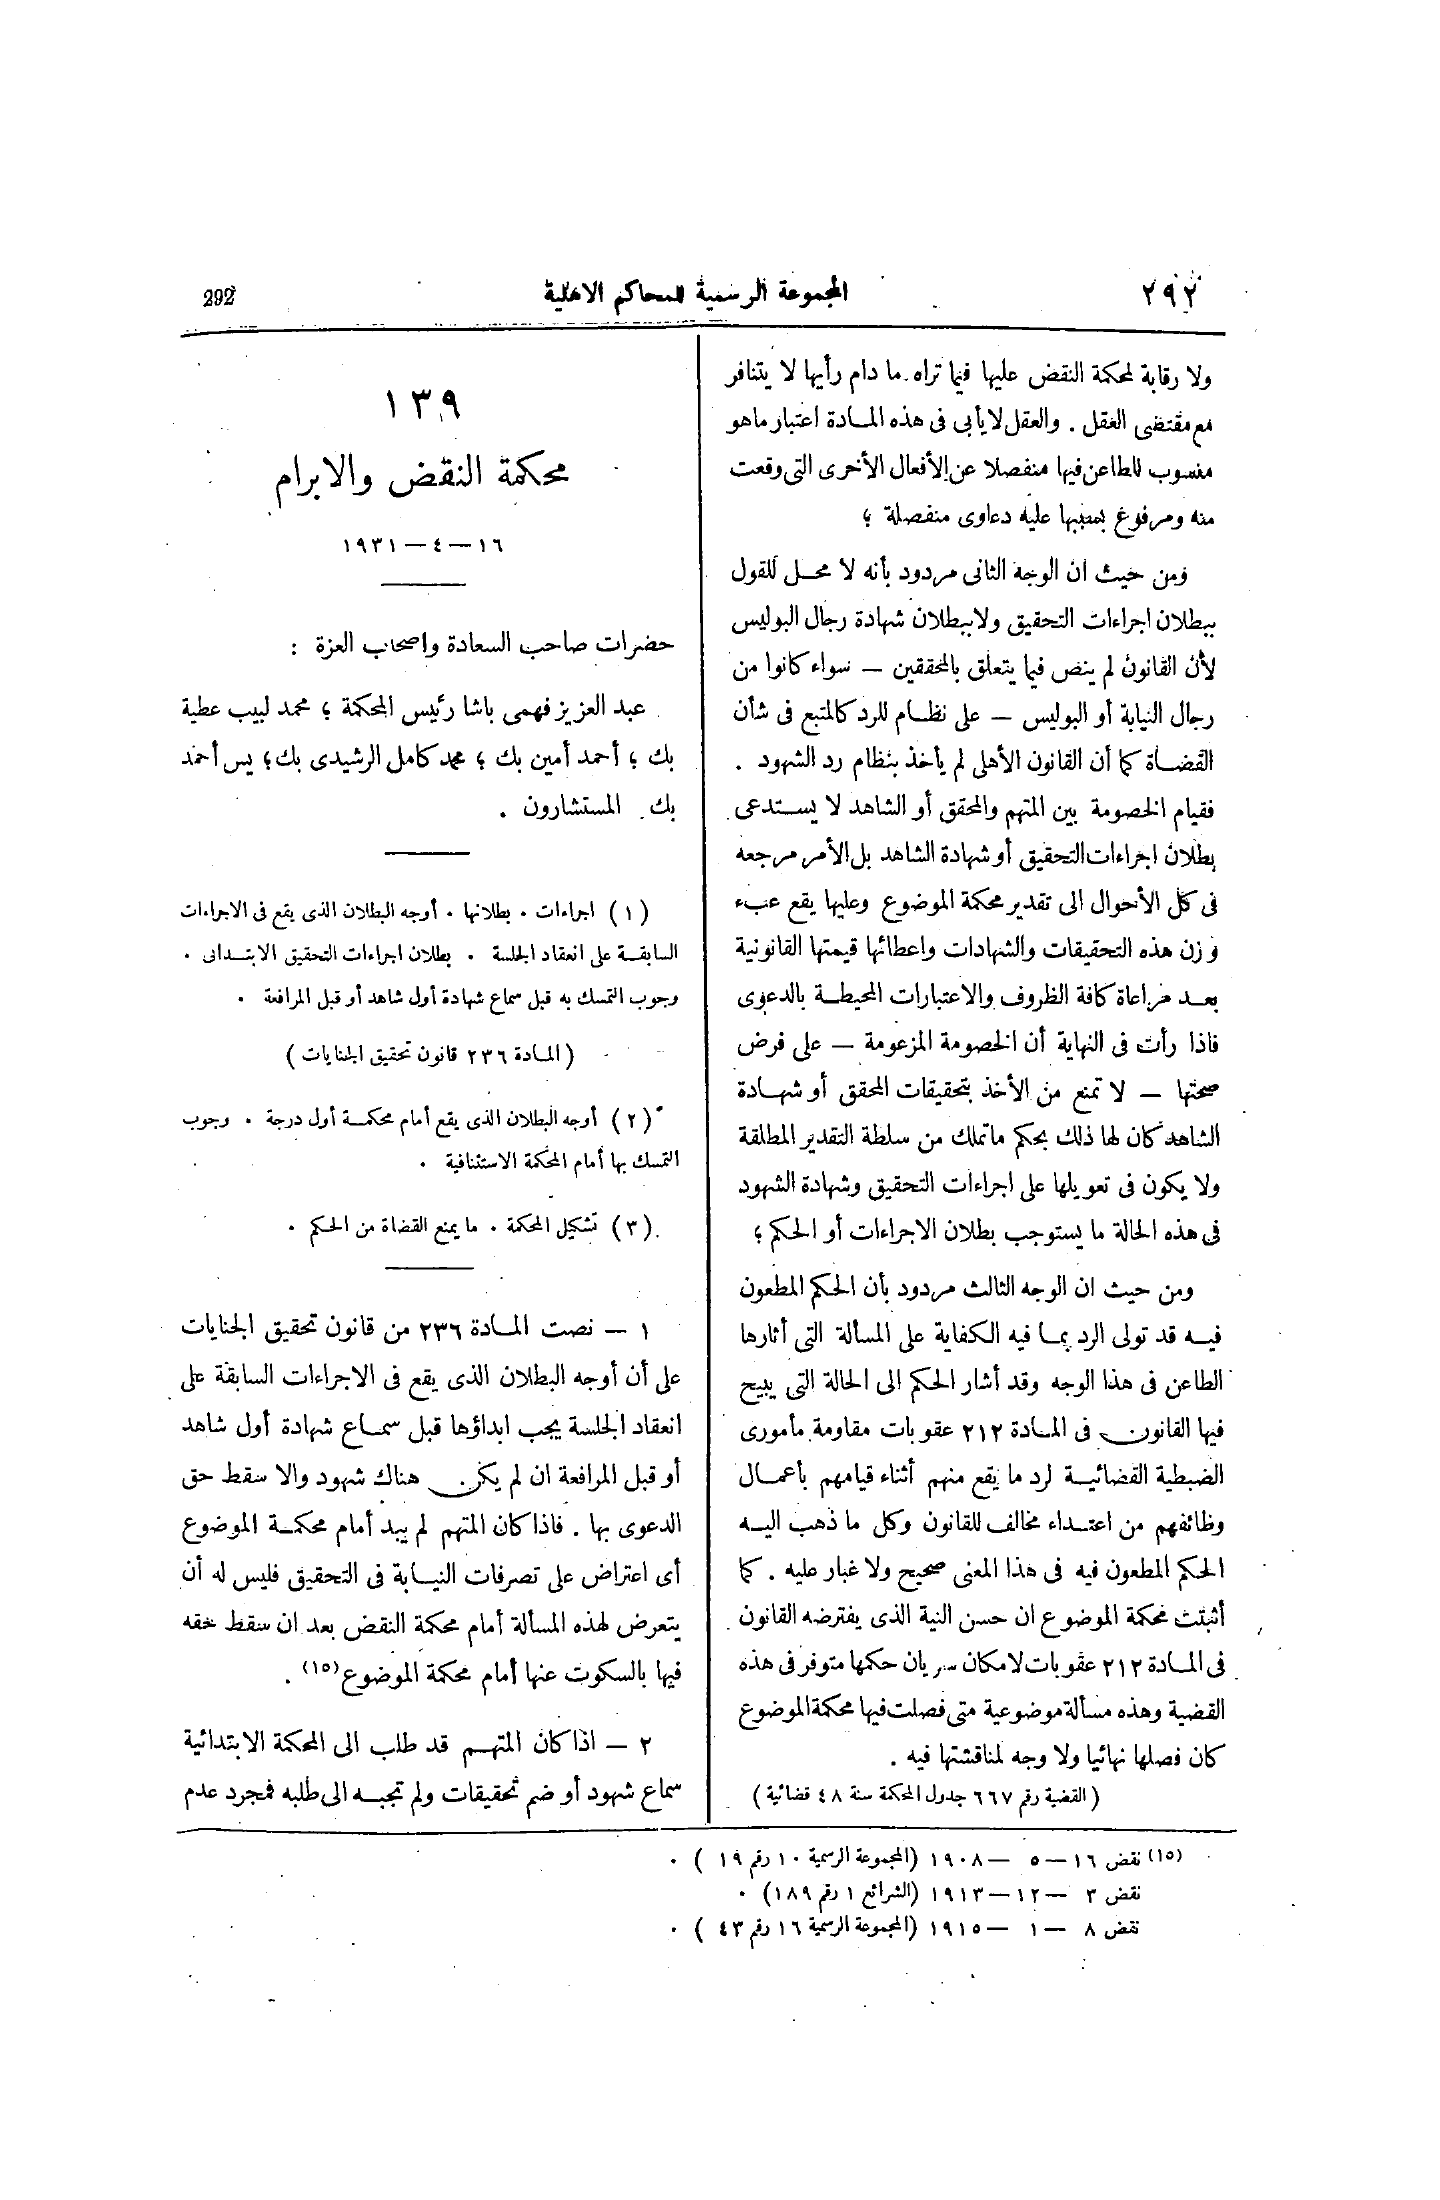 ٢٩٢
المجموعة الرسمية للمحاكم الاهلية
292
ولا رقابة لمحكمة النقض عليها فيما تراه ما دام رأيها لا يتنافر
مع مقتضى العقل . والعقل لا يأبى فى هذه المادة اعتبار ماهو
منسوب للطاعن فيها منفصلا عن الأفعال الأخرى التى وقعت
منه ومرفوع بسببها عليه دعاوى منفصلة ؛
ومن حيث ان الوجه الثانى مردود بأنه لا محل للقول
ببطلان اجراءات التحقيق ولا ببطلان شهادة رجال البوليس
لأن القانون لم ينص فيما يتعلق بالمحققين — سواء كانوا من
رجال النيابة أو البوليس — على نظام للرد كالمتبع فى شأن
القضاة كما أن القانون الأهلى لم يأخذ بنظام رد الشهود .
فقيام الخصومة بين المتهم والمحقق أو الشاهد لا يستدعى
بطلان اجراءات التحقيق أو شهادة الشاهد بل الأمر مرجعه
فى كل الأحوال الى تقدير محكمة الموضوع وعليها يقع عبء
وزن هذه التحقيقات والشهادات واعطائها قيمتها القانونية
بعد مراعاة كافة الظروف والاعتبارات المحيطة بالدعوى
فاذا رأت فى النهاية أن الخصومة المزعومة — على فرض
صحتها — لا تمنع من الأخذ بتحقيقات المحقق أو شهادة
الشاهد كان لها ذلك بحكم ماتملك من سلطة التقدير المطلقة
ولا يكون فى تعويلها على اجراءات التحقيق وشهادة الشهود
فى هذه الحالة ما يستوجب بطلان الاجراءات أو الحكم ؛
ومن حيث ان الوجه الثالث مردود بأن الحكم المطعون
فيه قد تولى الرد بما فيه الكفاية على المسألة التى أثارها
الطاعن فى هذا الوجه وقد أشار الحكم الى الحالة التى يبيح
فيها القانون فى المادة ٢١٢ عقوبات مقاومة مأمورى
الضبطية القضائية لرد ما يقع منهم أثناء قيامهم بأعمال
وظائفهم من اعتداء مخالف للقانون وكل ما ذهب اليه
الحكم المطعون فيه فى هذا المعنى صحيح ولا غبار عليه . كما
أثبتت محكمة الموضوع ان حسن النية الذى يفترضه القانون
فى المادة ٢١٢ عقوبات لامكان سريان حكمها متوفر فى هذه
القضية وهذه مسألة موضوعية متى فصلت فيها محكمة الموضوع
كان فصلها نهائيا ولا وجه لمناقشتها فيه .
( القضية رقم ٦٦٧ جدول المحكمة سنة ٤٨ قضائية )
١٣٩
محكمة النقض والابرام
١٦ — ٤ — ١٩٣١
حضرات صاحب السعادة واصحاب العزة :
عبد العزيز فهمى باشا رئيس المحكمة ؛ محمد لبيب عطية
بك ؛ أحمد أمين بك ؛ محمد كامل الرشيدى بك ؛ يس أحمد
بك المستشارون .
( ١ ) اجراءات . بطلانها . أوجه البطلان الذى يقع فى الاجراءات
السابقة على انعقاد الجلسة . بطلان اجراءات التحقيق الابتدائى .
وجوب التمسك به قبل سماع شهادة أول شاهد أو قبل المرافعة .
( المادة ٢٣٦ قانون تحقيق الجنايات )
( ٢ ) أوجه البطلان الذى يقع أمام محكمة أول درجة . وجوب
التمسك بها أمام المحكمة الاستئنافية .
( ٣ ) تشكيل المحكمة . ما يمنع القضاة من الحكم .
١ — نصت المادة ٢٣٦ من قانون تحقيق الجنايات
على أن أوجه البطلان الذى يقع فى الاجراءات السابقة على
انعقاد الجلسة يجب ابداؤها قبل سماع شهادة أول شاهد
أو قبل المرافعة ان لم يكن هناك شهود والا سقط حق
الدعوى بها . فاذا كان المتهم لم يبد أمام محكمة الموضوع
أى اعتراض على تصرفات النيابة فى التحقيق فليس له أن
يتعرض لهذه المسألة أمام محكمة النقض بعد ان سقط حقه
فيها بالسكوت عنها أمام محكمة الموضوع (١٥) .
٢ — اذا كان المتهم قد طلب الى المحكمة الابتدائية
سماع شهود أو ضم تحقيقات ولم تجبه الى طلبه فمجرد عدم
(١٥) نقض ١٦ — ٥ — ١٩٠٨ (المجموعة الرسمية ١٠ رقم ١٩ ) .
نقض ٣ — ١٢ — ١٩١٣ (الشرائع ١ رقم ١٨٩) .
نقض ٨ — ١ — ١٩١٥ (المجموعة الرسمية ١٦ رقم ٤٣ ) .